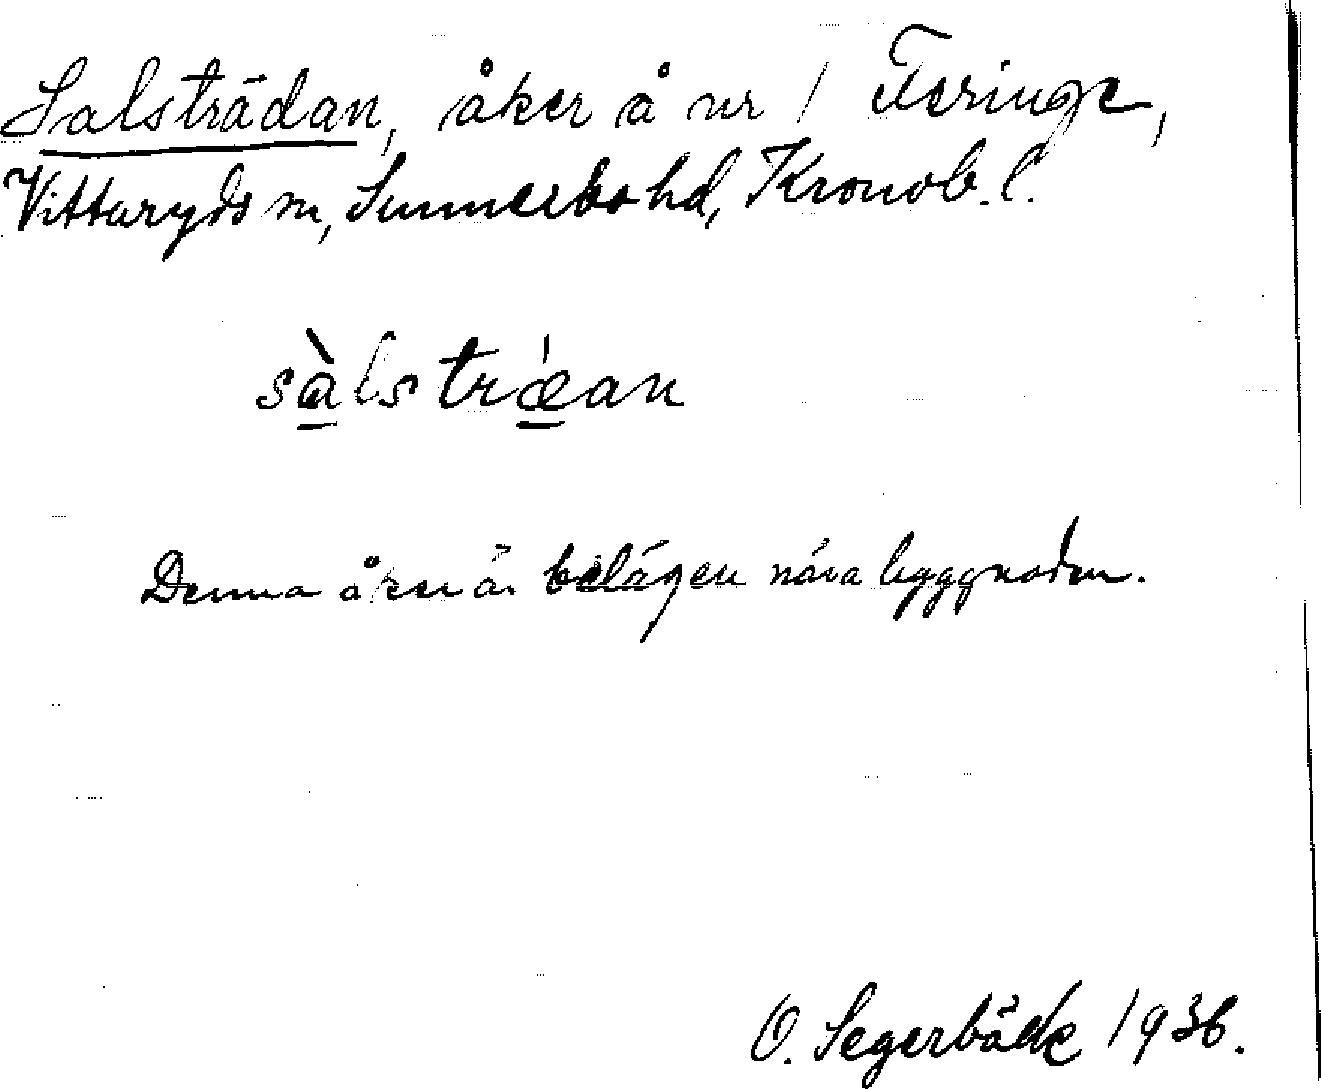 Salsträdan, åker å nr 1 Feringe,
Vittaryds sn, Sunnerbo hd, Kronob. l.
sàlstrǽan
Denna åker är belägen nära byggnaden.
O. Segerbäck 1936.